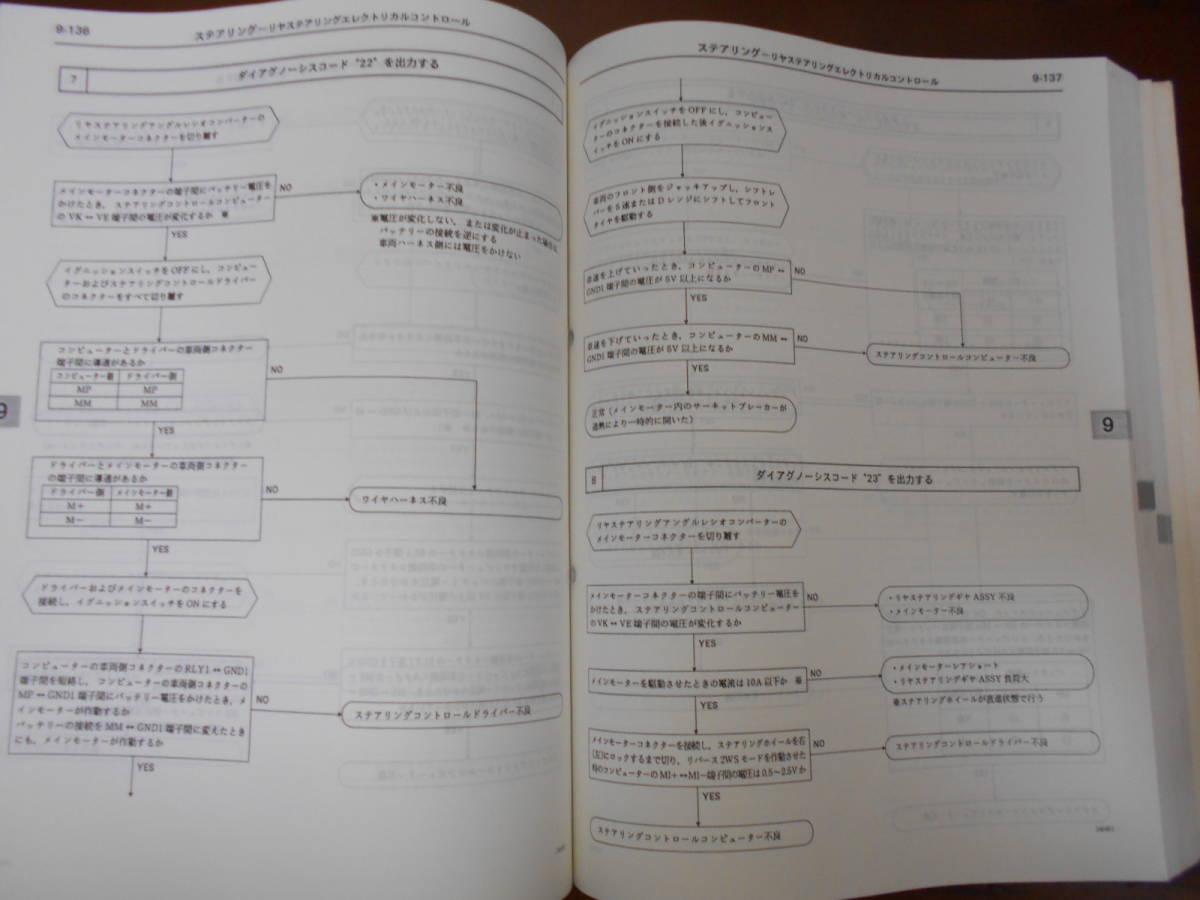 9-136
ステアリングーリヤステアリングエレクトリカルコントロール
7
ダイアグノーシスコード "22" を出力する
リヤステアリングアングルレシオコンバーターの
メインモーターコネクターを切り離す
メインモーターコネクターの端子間にバッテリー電圧を
かけたとき、ステアリングコントロールコンピューター
の VK ↔ VE 端子間の電圧が変化するか ※
NO
・メインモーター不良
・ワイヤハーネス不良
※電圧が変化しない、または変化が止まった場合は
バッテリーの接続を逆にする
車両ハーネス側には電圧をかけない
YES
イグニッションスイッチを OFF にし、コンピュー
ターおよびステアリングコントロールドライバー
のコネクターをすべて切り離す
コンピューターとドライバーの車両側コネクター
端子間に導通があるか
コンピューター側 ドライバー側
MP MP
MM MM
NO
YES
ドライバーとメインモーターの車両側コネクター
の端子間に導通があるか
ドライバー側 メインモーター側
M+ M+
M− M−
NO
ワイヤハーネス不良
YES
ドライバーおよびメインモーターのコネクターを
接続し、イグニッションスイッチを ON にする
コンピューターの車両側コネクターの RLY1 ↔ GND1
端子間を短絡し、コンピューターの車両側コネクターの
MP ↔ GND1 端子間にバッテリー電圧をかけたとき、メ
インモーターが作動するか
バッテリーの接続を MM ↔ GND1 端子間に変えたとき
にも、メインモーターが作動するか
NO
ステアリングコントロールドライバー不良
YES
ステアリングーリヤステアリングエレクトリカルコントロール
9-137
イグニッションスイッチを OFF にし、コンピュー
ターのコネクターを接続した後イグニッションス
イッチを ON にする
車両のフロント側をジャッキアップし、シフトレ
バーを 5 速または D レンジにシフトしてフロント
タイヤを駆動する
車速を上げていったとき、コンピューターの MP ↔
GND1 端子間の電圧が 5V 以上になるか
NO
YES
車速を下げていったとき、コンピューターの MM ↔
GND1 端子間の電圧が 5V 以上になるか
NO
ステアリングコントロールコンピューター不良
YES
正常（メインモーター内のサーキットブレーカーが
過熱により一時的に開いた）
9
9
8
ダイアグノーシスコード "23" を出力する
リヤステアリングアングルレシオコンバーターの
メインモーターコネクターを切り離す
メインモーターコネクターの端子間にバッテリー電圧を
かけたとき、ステアリングコントロールコンピューター
の VK ↔ VE 端子間の電圧が変化するか
NO
・リヤステアリングギヤ ASSY 不良
・メインモーター不良
YES
メインモーターを駆動させたときの電流は 10A 以下か ※
NO
・メインモーターレアショート
・リヤステアリングギヤ ASSY 負荷大
※ステアリングホイールが直進状態で行う
YES
メインモーターコネクターを接続し、ステアリングホイールを右
(左)にロックするまで切り、リバース 2WS モードを作動させた
時のコンピューターの MI+ ↔ MI− 端子間の電圧は 0.5〜2.5V か
NO
ステアリングコントロールドライバー不良
YES
ステアリングコントロールコンピューター不良